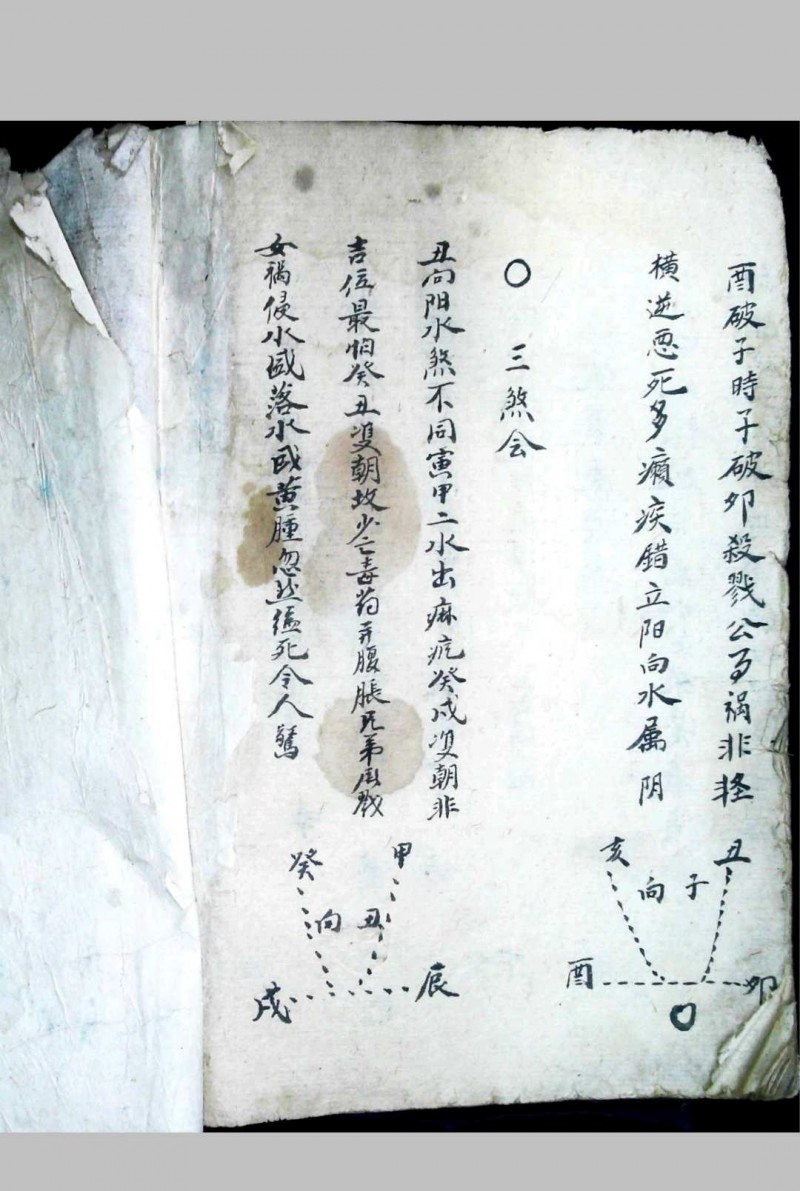 酉破子時子破夘殺戮公子禍非轻
横逆恶死多癩疾錯立阳向水属阴
丑
子
向
亥
夘
酉
〇 三煞会
丑向阳水煞不同寅甲二水出痳疯癸戍双朝非
吉位最怕癸丑双朝坟少亡毒药并腹脹兄弟相戮
女禍侵水盛落水或黄腫忽然缢死令人驚
甲
丑
向
癸
辰
戍